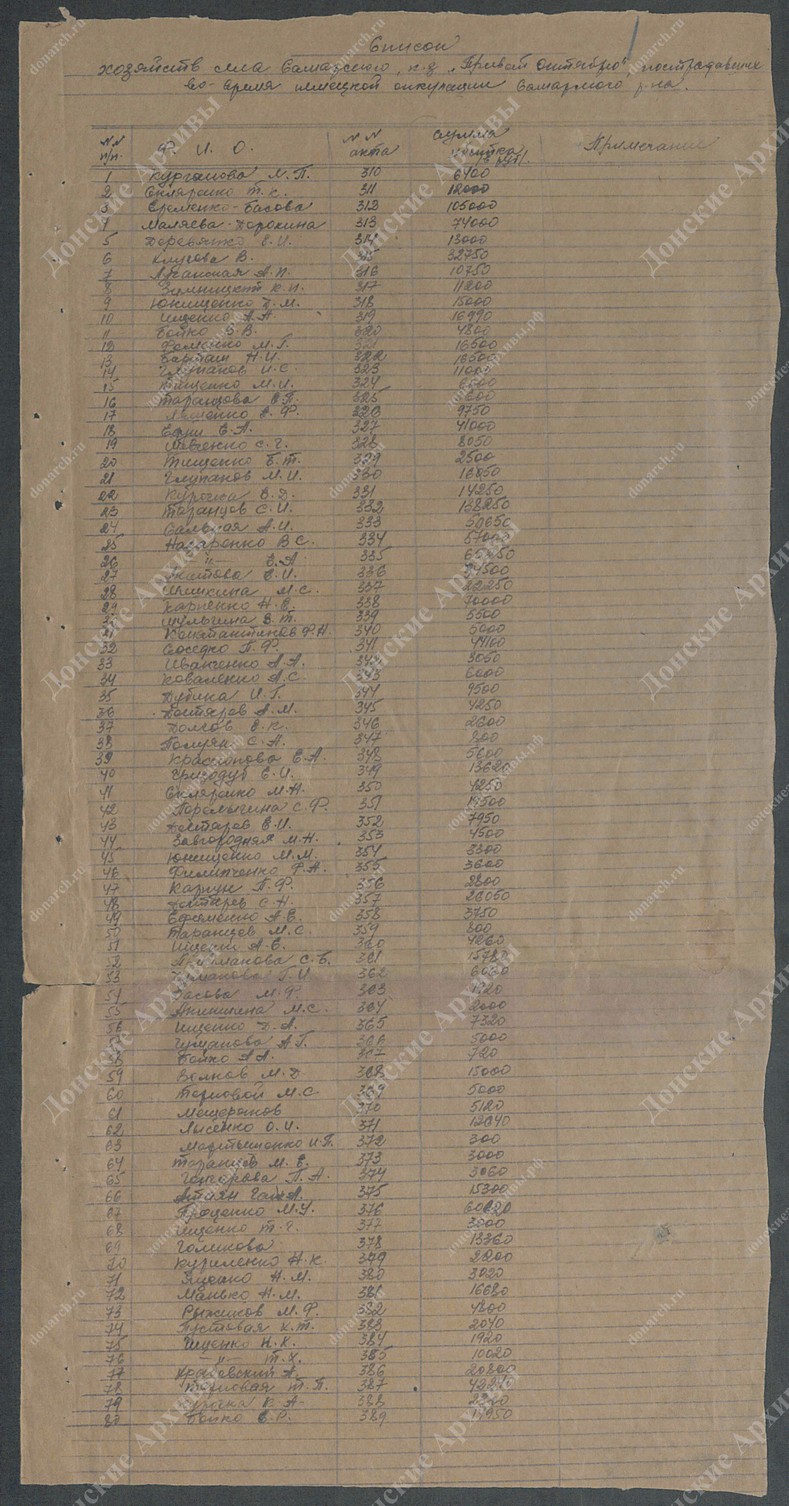 Список
хозяйств села Самарского, к-з „Привет Октябрю", пострадавших
во время немецкой оккупации Самарского р-на.
NN п/п. Ф. И. О. NN акта сумма убытка Примечание
1 Курганова М.П. 310 6400
2 Скляренко Т.К. 311 12000
3 Еременко-Басова 312 105000
4 Маляева 313 74000
5 Деревянко Е.И. 314 13000
6 Клугова В. 315 32750
7 Луганская А.П. 316 10750
8 К.И. 317 11200
9 Юнищенко Д.М. 318 15000
10 Ищенко А.А. 319 16990
11 Бойко В.В. 320 4800
12 Фоменко М.Г. 321 16500
13 Барташ Н.И. 322 16500
14 Глупанов И.С. 323 11000
15 Тищенко М.И. 324
16 Таранцова Е.П. 325
17 Ляшенко Е.Ф. 326 9750
18 Е.А. 327 41000
19 Шевченко С.Г. 328 8050
20 Тищенко Б.Т. 329 2500
21 Глупанов М.И. 330 16850
22 Курочка В.Д. 331 14250
23 Таранцов С.И. 332 138250
24 Сальная А.И. 333 50650
25 Назаренко В.С. 334 57000
26 -"- Е.А. 335
27 Е.И. 336 24500
28 Шишкина М.С. 337 22250
29 Карпенко Н.Е. 338 70000
30 Шульгина В.Т. 339 5500
31 Константинов Ф.Н. 340 5000
32 Соседко П.Ф. 341 44100
33 Иванченко А.А. 342 3050
34 Коваленко А.С. 343 6000
35 Дубина И.Г. 344 9500
36 Дегтярев А.М. 345 4250
37 Долгов Е.К. 346 2600
38 Полуян С.А. 347 800
39 Краснопова Е.А. 348 5600
40 Е.И. 349 13620
41 Скляренко М.Н. 350 4250
42 Перелыгина С.Ф. 351 14500
43 Дегтярев Е.И. 352 7950
44 Завгородняя М.Н. 353 4500
45 Юнищенко М.М. 354 3300
46 Филипченко Ф.А. 355 3600
47 Карпун П.Ф. 356 2800
48 Дегтярев С.Н. 357 26050
49 Ефременко А.Е. 358 3750
50 Таранцев М.С. 359 800
51 Ищенко А.Е. 360 4060
52 С.Б. 361
53 Г.И. 362
54 Басова М.Ф. 363 1920
55 Аникиена М.С. 364 2000
56 Ищенко Д.А. 365 7320
57 А.Г. 366 5000
58 Бойко А.А. 367 720
59 Волков М.Д. 368 15000
60 Терновой М.С. 369 5000
61 Мещеряков 370 5120
62 Лысенко О.И. 371 12040
63 Мартыненко И.П. 372 300
64 Таранцев М.Е. 373 3000
65 Гончарова П.А. 374 3060
66 375 15300
67 Проценко М.У. 376
68 Ищенко Т.Я. 377 3000
69 Голикова 378 13360
70 Куриленко Н.К. 379 2200
71 Яценко Н.М. 380 3020
72 Манько Н.М. 381 16680
73 Рыжиков М.Ф. 382 4800
74 Пустовая Х.Т. 383 2040
75 Ищенко Н.Х. 384 1920
76 -"- Т.Х. 385 10020
77 Краевский А. 386 20800
78 Терновая Т.П. 387
79 Курочка К.А. 388
80 Бойко Е.Р. 389 14950
Донские Архивы
donarch.ru
донархивы.рф